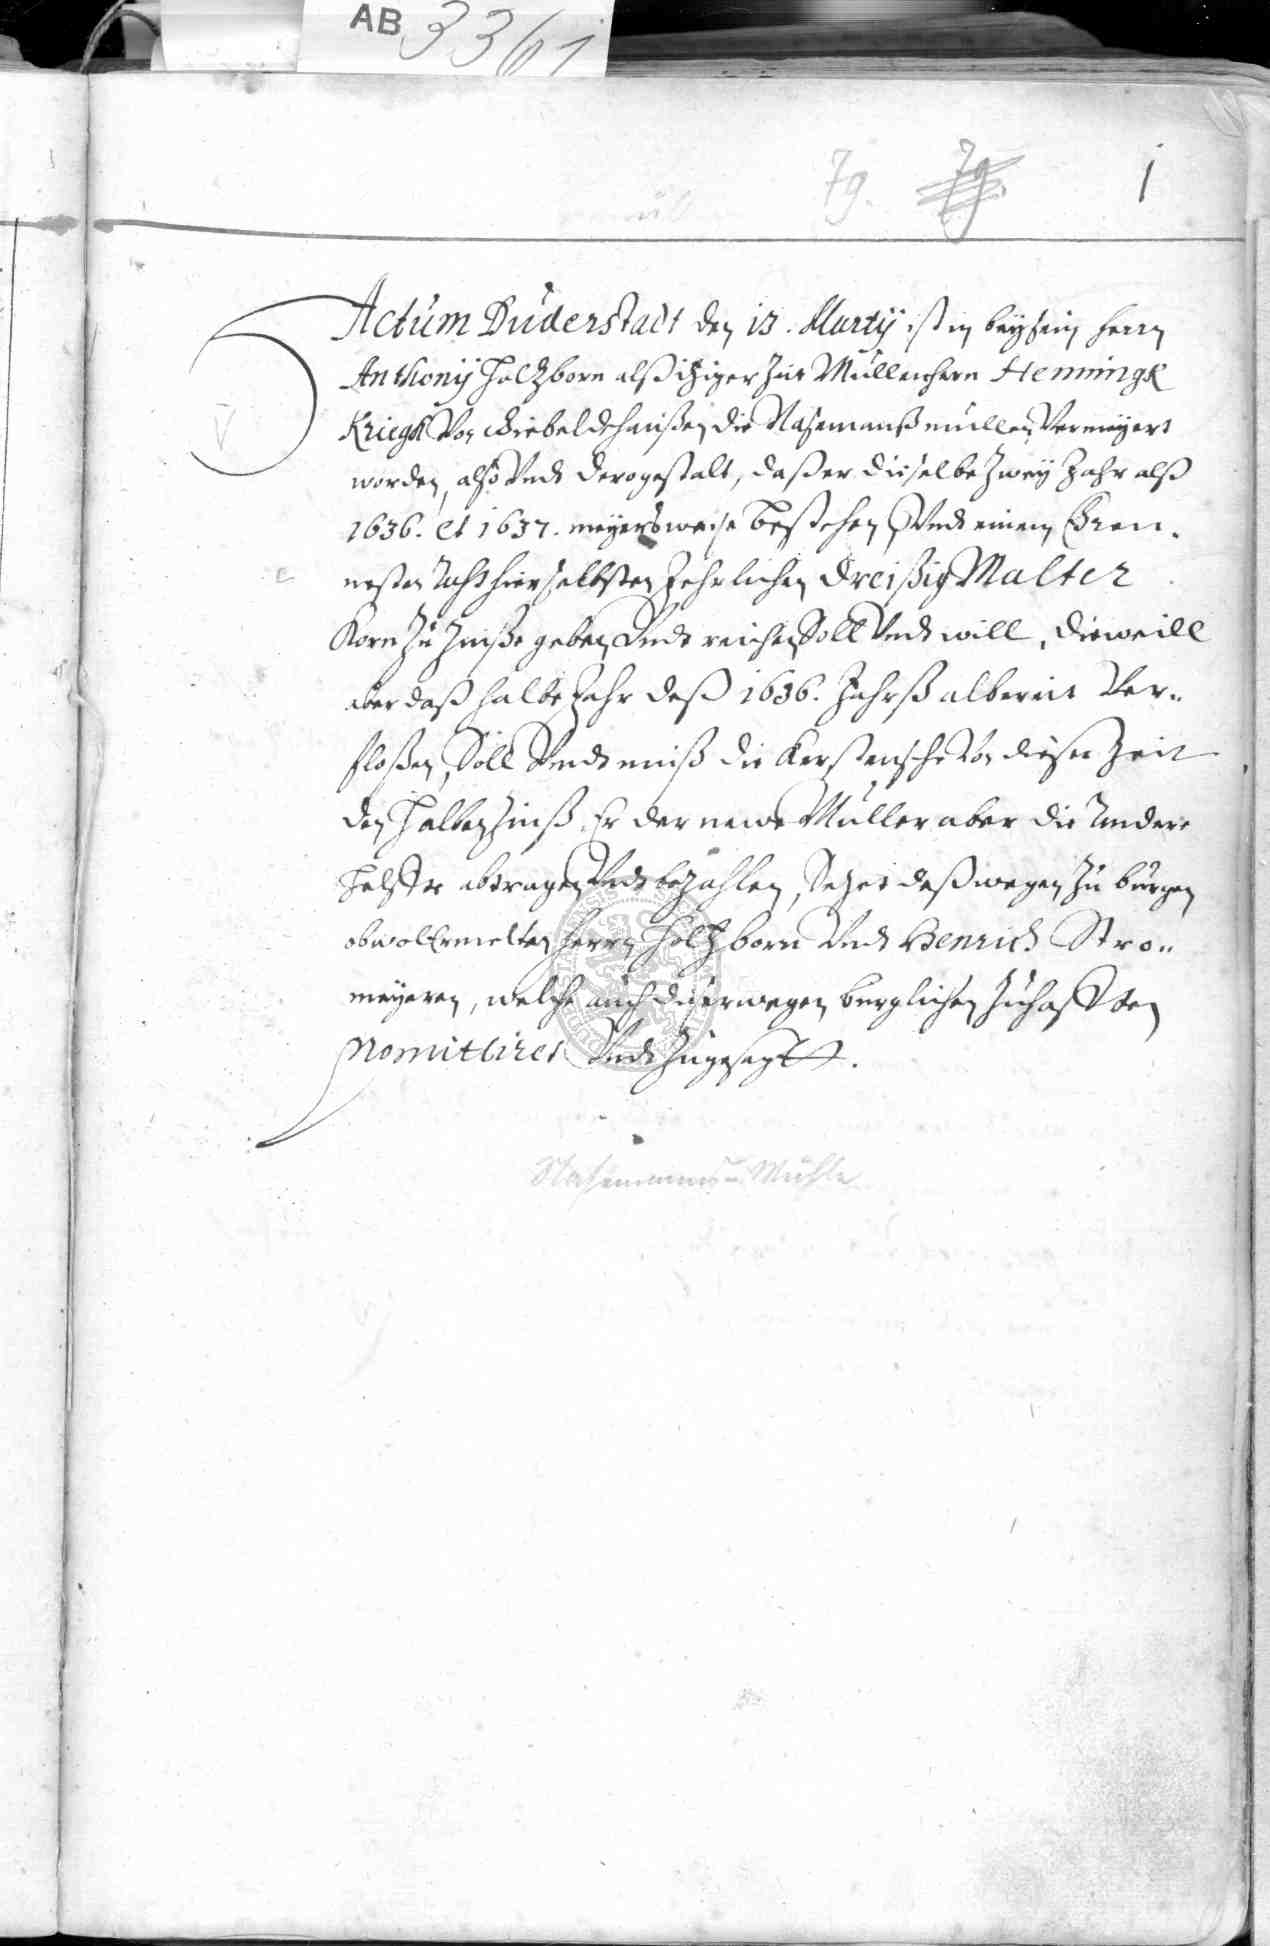 AB 3361
79. 79. 1
Actum Duderstadt den 13. Martij ist in beysein Herrn
Anthonij Holtzborn alß itziger Zeit Müllenherrn Henningk
Kriegk von Giebeldehaußen die Nasemanß müllen vermeyert
worden, also undt derogestalt, daß er dieselbe zwey Jahr alß
1636. et 1637. meyersweise bestehen undt einem Ehren-
nesten Raht hierselbsten Jehrlichen dreißig Malter
Korn zu Zinße geben undt reichen soll undt will, dieweill
aber daß halbe Jahr deß 1636. Jahrß albereit ver-
floßen, Soll undt muß die Kerstensche von dieser Zeit
den halben Zinß, Er der newe Müller aber die Andere
helffte abtragen undt bezahlen, Setzet deßwegen zu burgen
obwolermelten Herrn Holtzborn undt Henrich Stro-
meyeren, welche auch dieserwegen burglichen zuhafften
promittiret undt zugesagtt.
Nasemanns-Mühle